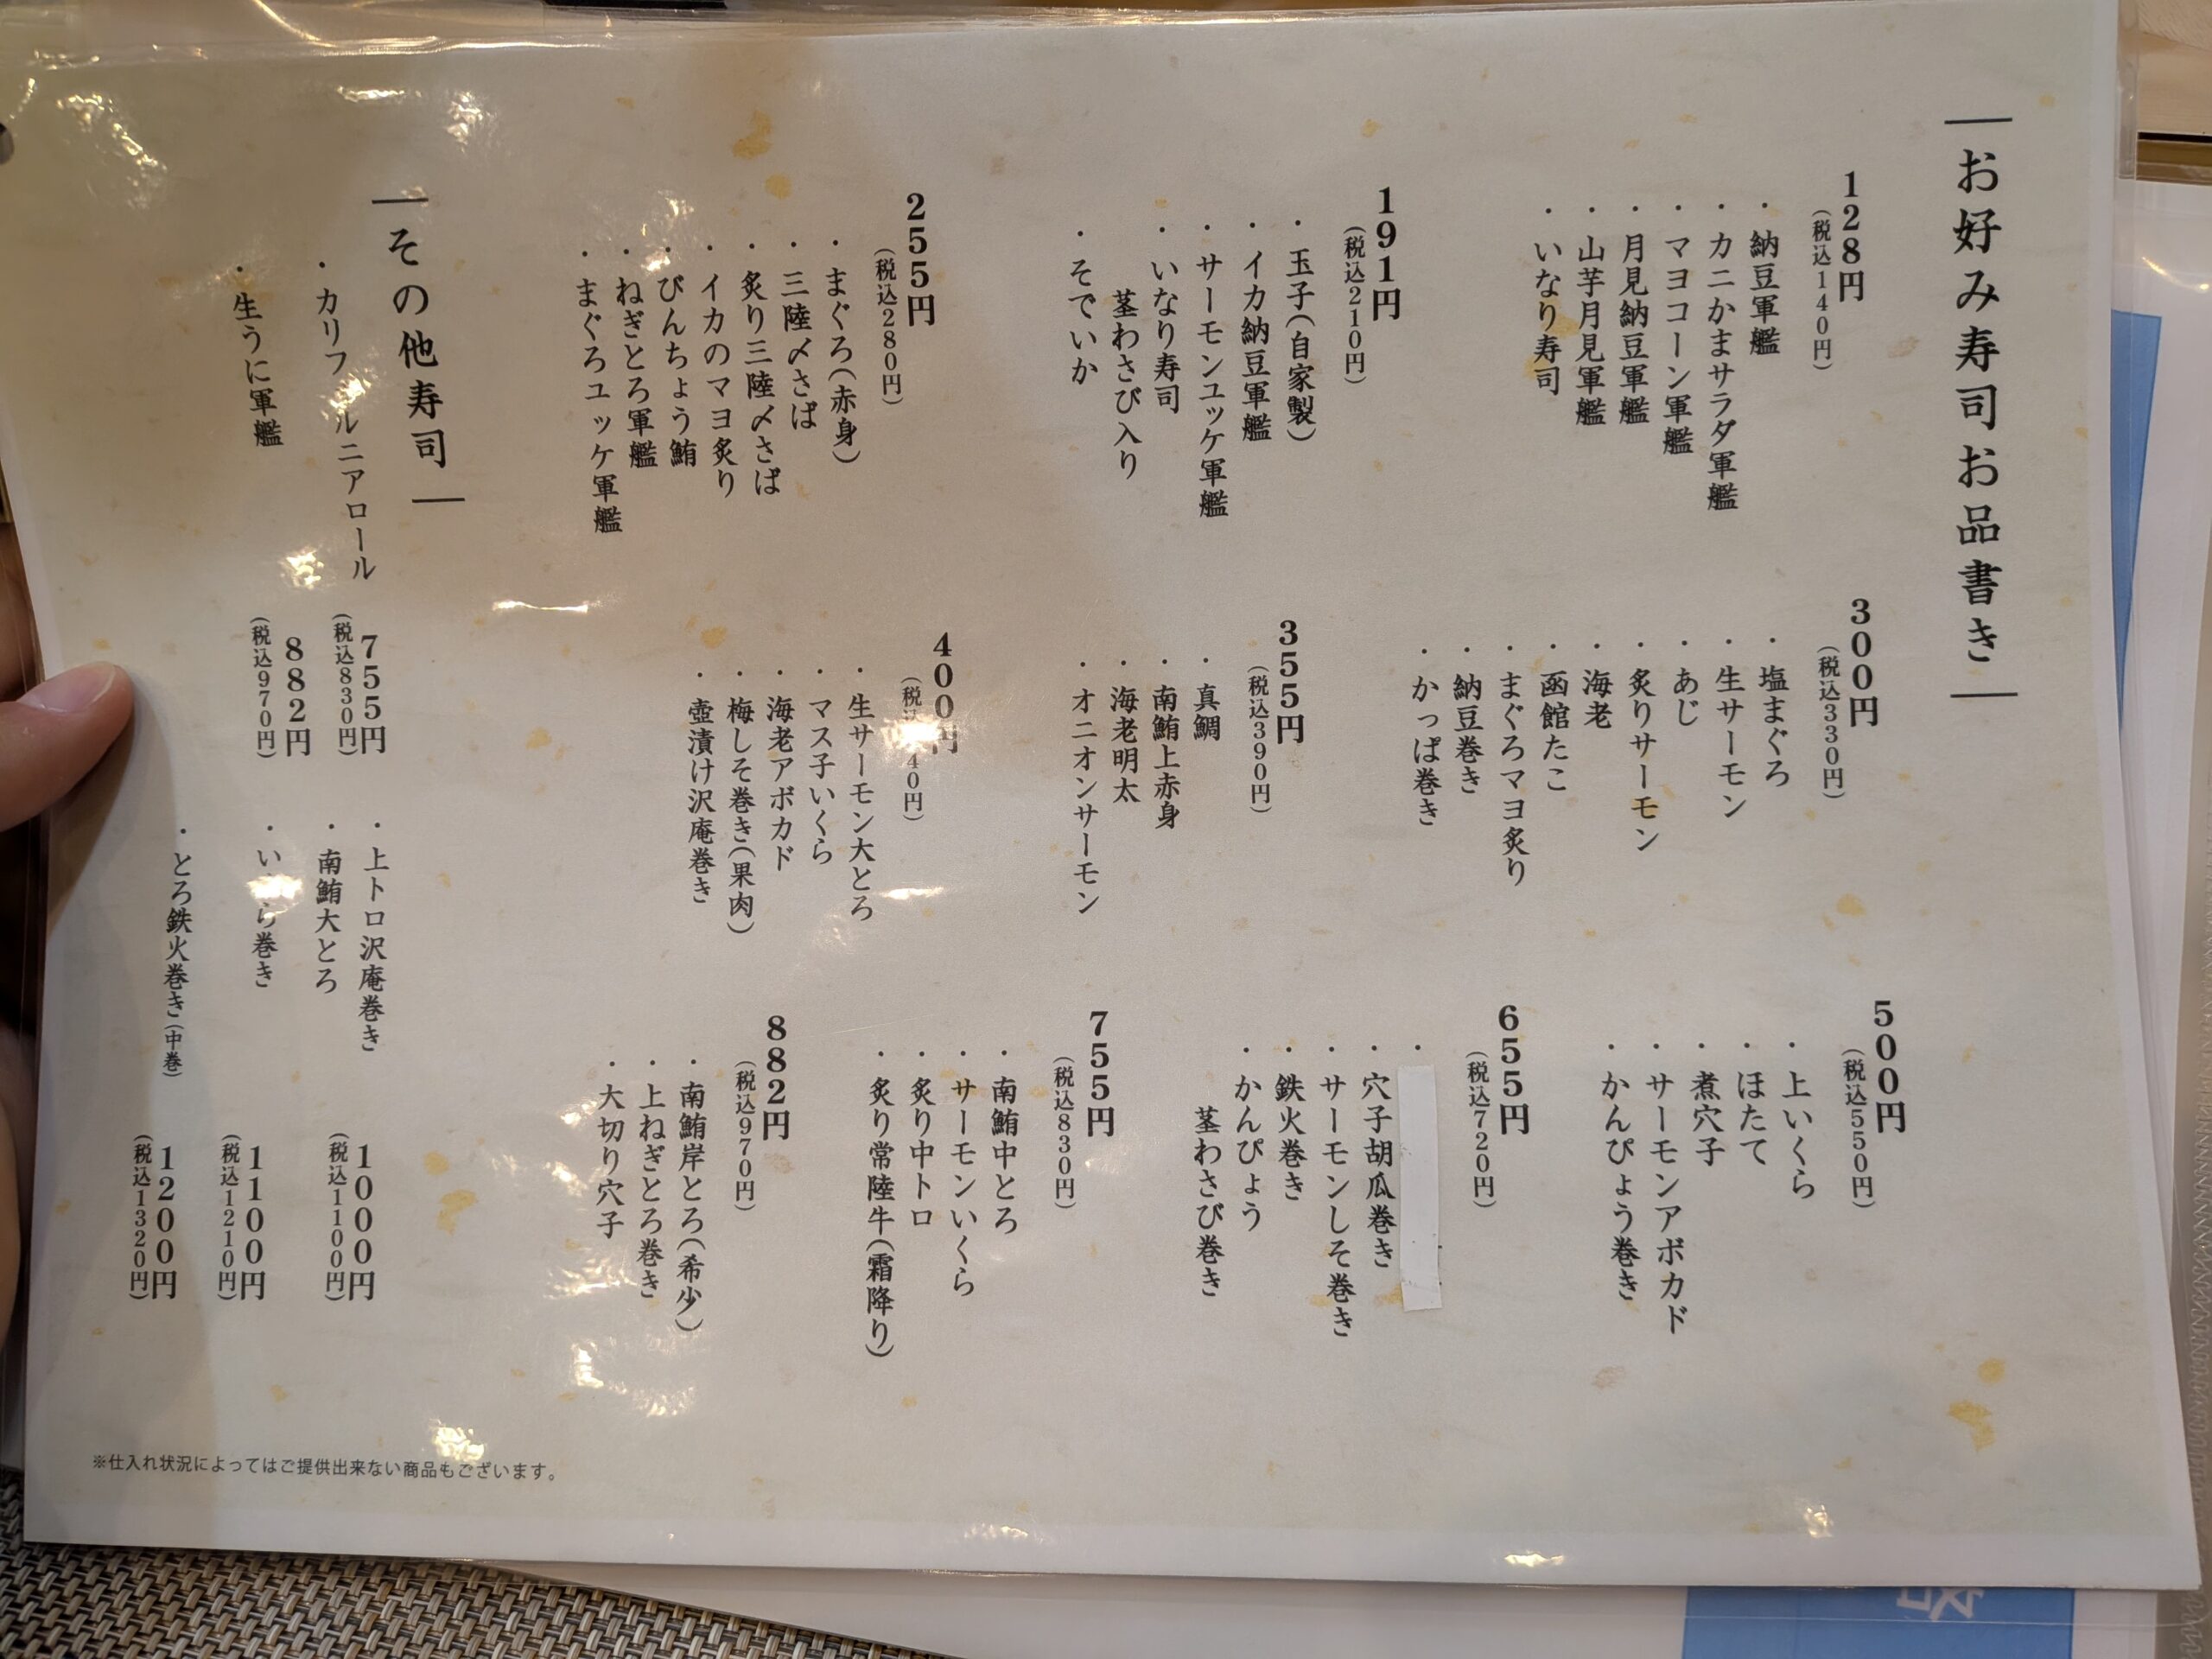 お好み寿司お品書き
128円
(税込140円)
・納豆軍艦
・カニかまサラダ軍艦
・マヨコーン軍艦
・月見納豆軍艦
・山芋月見軍艦
・いなり寿司
191円
(税込210円)
・玉子(自家製)
・イカ納豆軍艦
・サーモンユッケ軍艦
・いなり寿司
茎わさび入り
・そでいか
255円
(税込280円)
・まぐろ(赤身)
・三陸〆さば
・炙り三陸〆さば
・イカのマヨ炙り
・びんちょう鮪
・ねぎとろ軍艦
・まぐろユッケ軍艦
300円
(税込330円)
・塩まぐろ
・生サーモン
・あじ
・炙りサーモン
・海老
・函館たこ
・まぐろマヨ炙り
・納豆巻き
・かっぱ巻き
355円
(税込390円)
・真鯛
・南鮪上赤身
・海老明太
・オニオンサーモン
400円
(税込 40円)
・生サーモン大とろ
・マス子いくら
・海老アボカド
・梅しそ巻き(果肉)
・壺漬け沢庵巻き
500円
(税込550円)
・上いくら
・ほたて
・煮穴子
・サーモンアボカド
・かんぴょう巻き
655円
(税込720円)
・
・穴子胡瓜巻き
・サーモンしそ巻き
・鉄火巻き
・かんぴょう
茎わさび巻き
755円
(税込830円)
・南鮪中とろ
・サーモンいくら
・炙り中トロ
・炙り常陸牛(霜降り)
882円
(税込970円)
・南鮪岸とろ(希少)
・上ねぎとろ巻き
・大切り穴子
その他寿司
・カリフォルニアロール
755円
(税込830円)
・生うに軍艦
882円
(税込970円)
・上トロ沢庵巻き
・南鮪大とろ
1000円
(税込1100円)
・いくら巻き
1100円
(税込1210円)
・とろ鉄火巻き(中巻)
1200円
(税込1320円)
※仕入れ状況によってはご提供出来ない商品もございます。